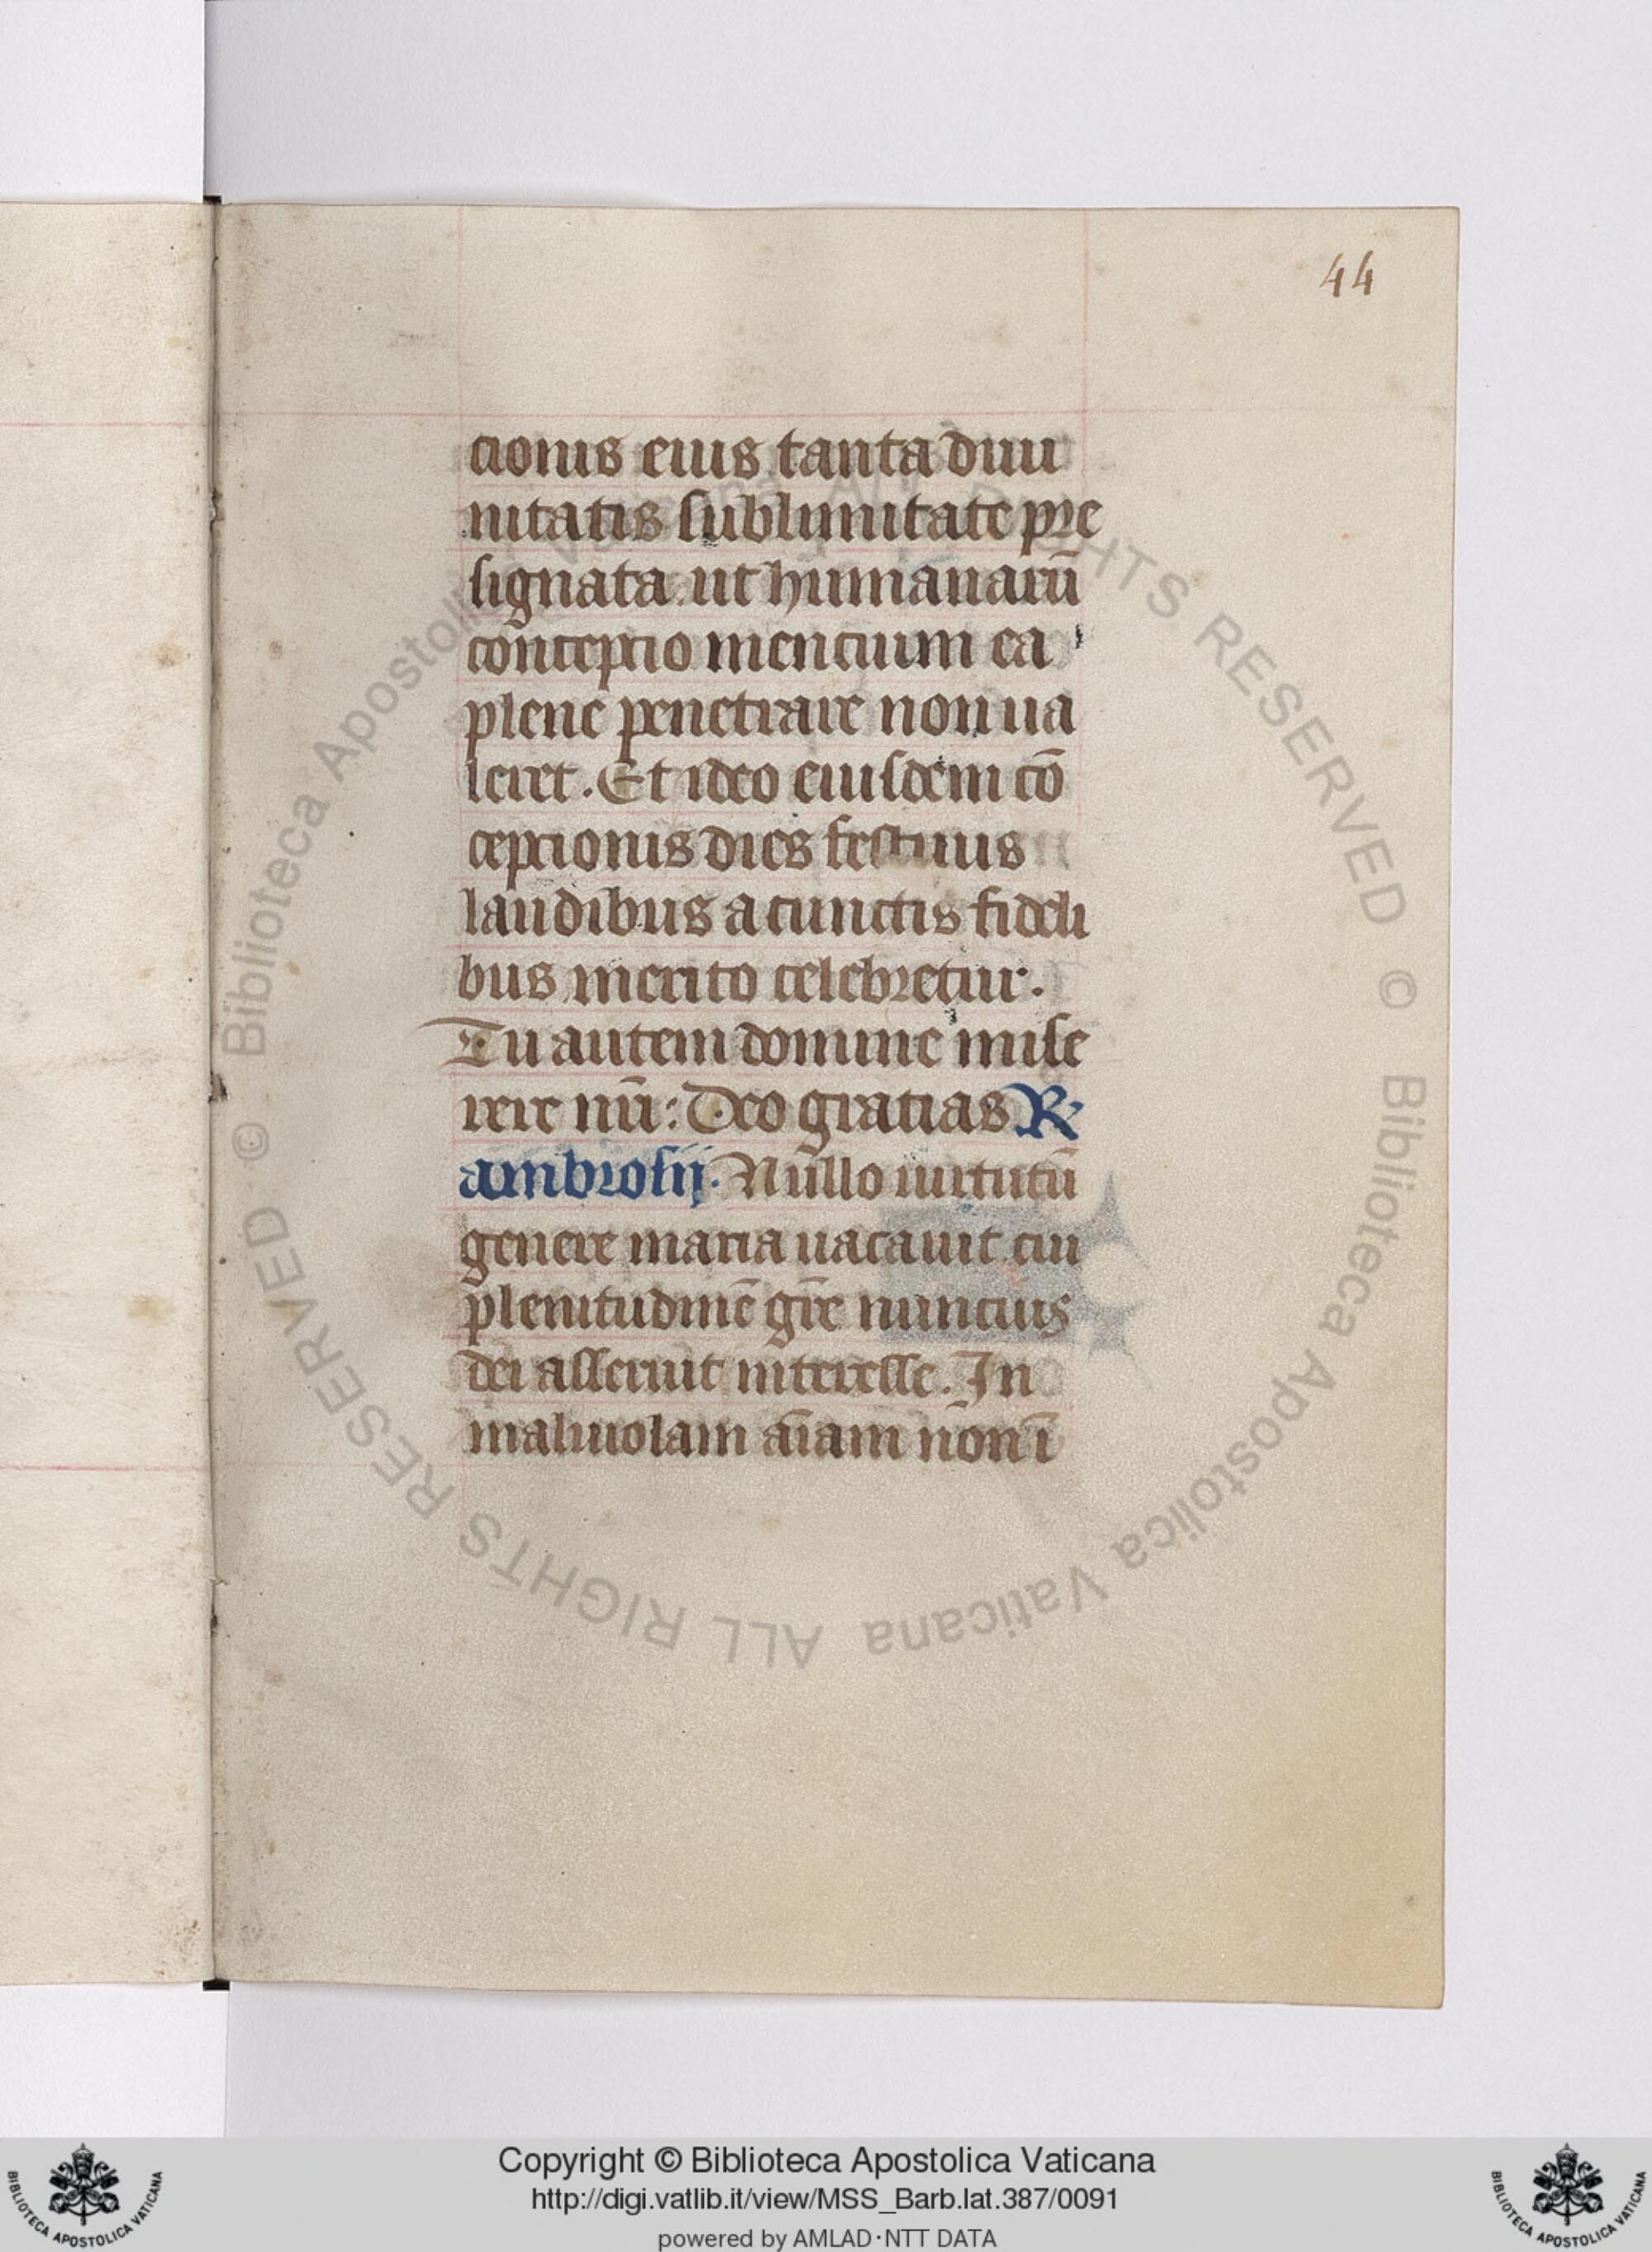 44
cionis eius tanta diui
nitatis sublimitate pre
signata. ut humanarū
conceptio mencium ea
plene penetrare non ua
leret. Et ideo eiusdem cō
ceptionis dies festiuis
laudibus a cunctis fideli
bus merito celebretur.
Tu autem domine mise
rere nr̄i: Deo gratias R
ambrosij. Nullo uirtutū
genere maria uacauit cui
plenitudinē gr̄e nuncius
dei asseruit interesse. In
maliuolam aīam non ī
© Biblioteca Apostolica Vaticana ALL RIGHTS RESERVED © Biblioteca Apostolica Vaticana ALL RIGHTS RESERVED
Copyright © Biblioteca Apostolica Vaticana
http://digi.vatlib.it/view/MSS_Barb.lat.387/0091
powered by AMLAD·NTT DATA
BIBLIOTECA APOSTOLICA VATICANA
BIBLIOTECA APOSTOLICA VATICANA